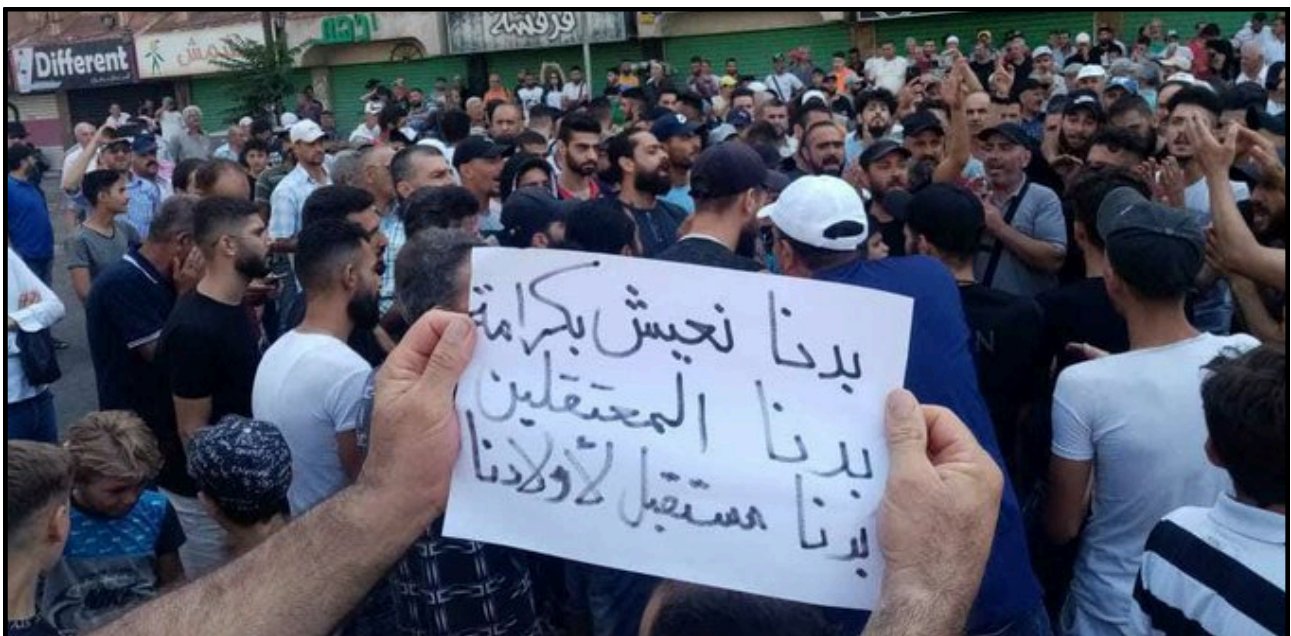 Different
قرقشة
بدنا نعيش بكرامة
بدنا المعتقلين
بدنا مستقبل لأولادنا